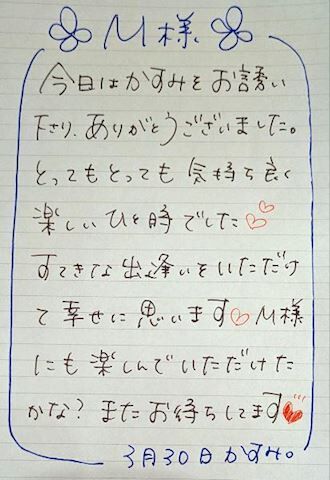 M様
今日はかすみをお誘い
下さり、ありがとうございました。
とってもとっても気持ち良く
楽しいひと時でした♡♡
すてきな出逢いをいただけ
て幸せに思います♡M様
にも楽しんでいただけた
かな?またお待ちしてます♥
3月30日かすみ。